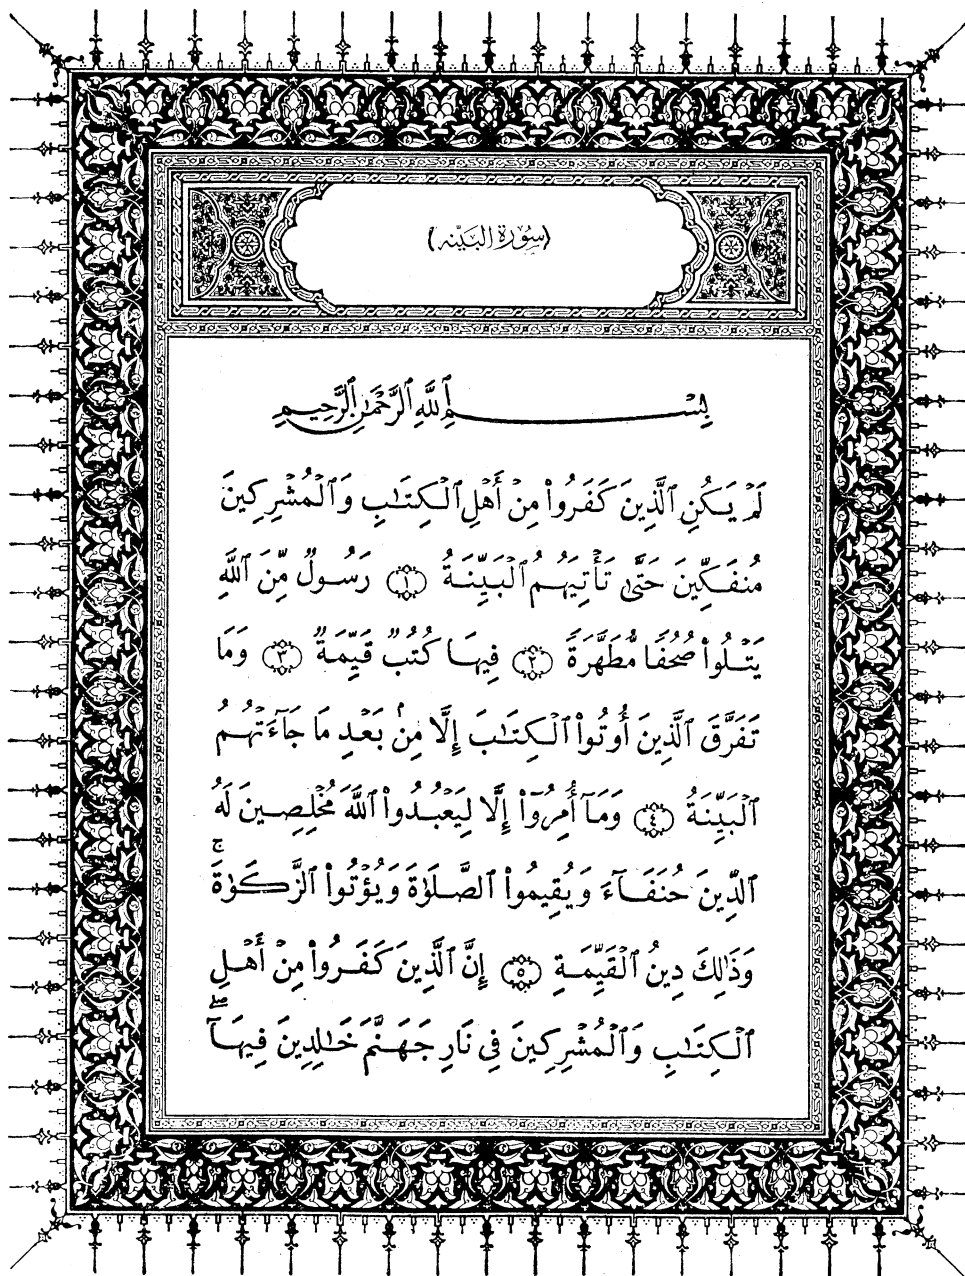 ﴿سُورَة البَيّنه﴾
بِسْمِ ٱللَّهِ ٱلرَّحْمَٰنِ ٱلرَّحِيمِ
لَمْ يَكُنِ ٱلَّذِينَ كَفَرُوا۟ مِنْ أَهْلِ ٱلْكِتَٰبِ وَٱلْمُشْرِكِينَ
مُنفَكِّينَ حَتَّىٰ تَأْتِيَهُمُ ٱلْبَيِّنَةُ ﴿١﴾ رَسُولٌ مِّنَ ٱللَّهِ
يَتْلُوا۟ صُحُفًا مُّطَهَّرَةً ﴿٢﴾ فِيهَا كُتُبٌ قَيِّمَةٌ ﴿٣﴾ وَمَا
تَفَرَّقَ ٱلَّذِينَ أُوتُوا۟ ٱلْكِتَٰبَ إِلَّا مِنۢ بَعْدِ مَا جَآءَتْهُمُ
ٱلْبَيِّنَةُ ﴿٤﴾ وَمَآ أُمِرُوٓا۟ إِلَّا لِيَعْبُدُوا۟ ٱللَّهَ مُخْلِصِينَ لَهُ
ٱلدِّينَ حُنَفَآءَ وَيُقِيمُوا۟ ٱلصَّلَوٰةَ وَيُؤْتُوا۟ ٱلزَّكَوٰةَ ۚ
وَذَٰلِكَ دِينُ ٱلْقَيِّمَةِ ﴿٥﴾ إِنَّ ٱلَّذِينَ كَفَرُوا۟ مِنْ أَهْلِ
ٱلْكِتَٰبِ وَٱلْمُشْرِكِينَ فِى نَارِ جَهَنَّمَ خَٰلِدِينَ فِيهَآ ۖ